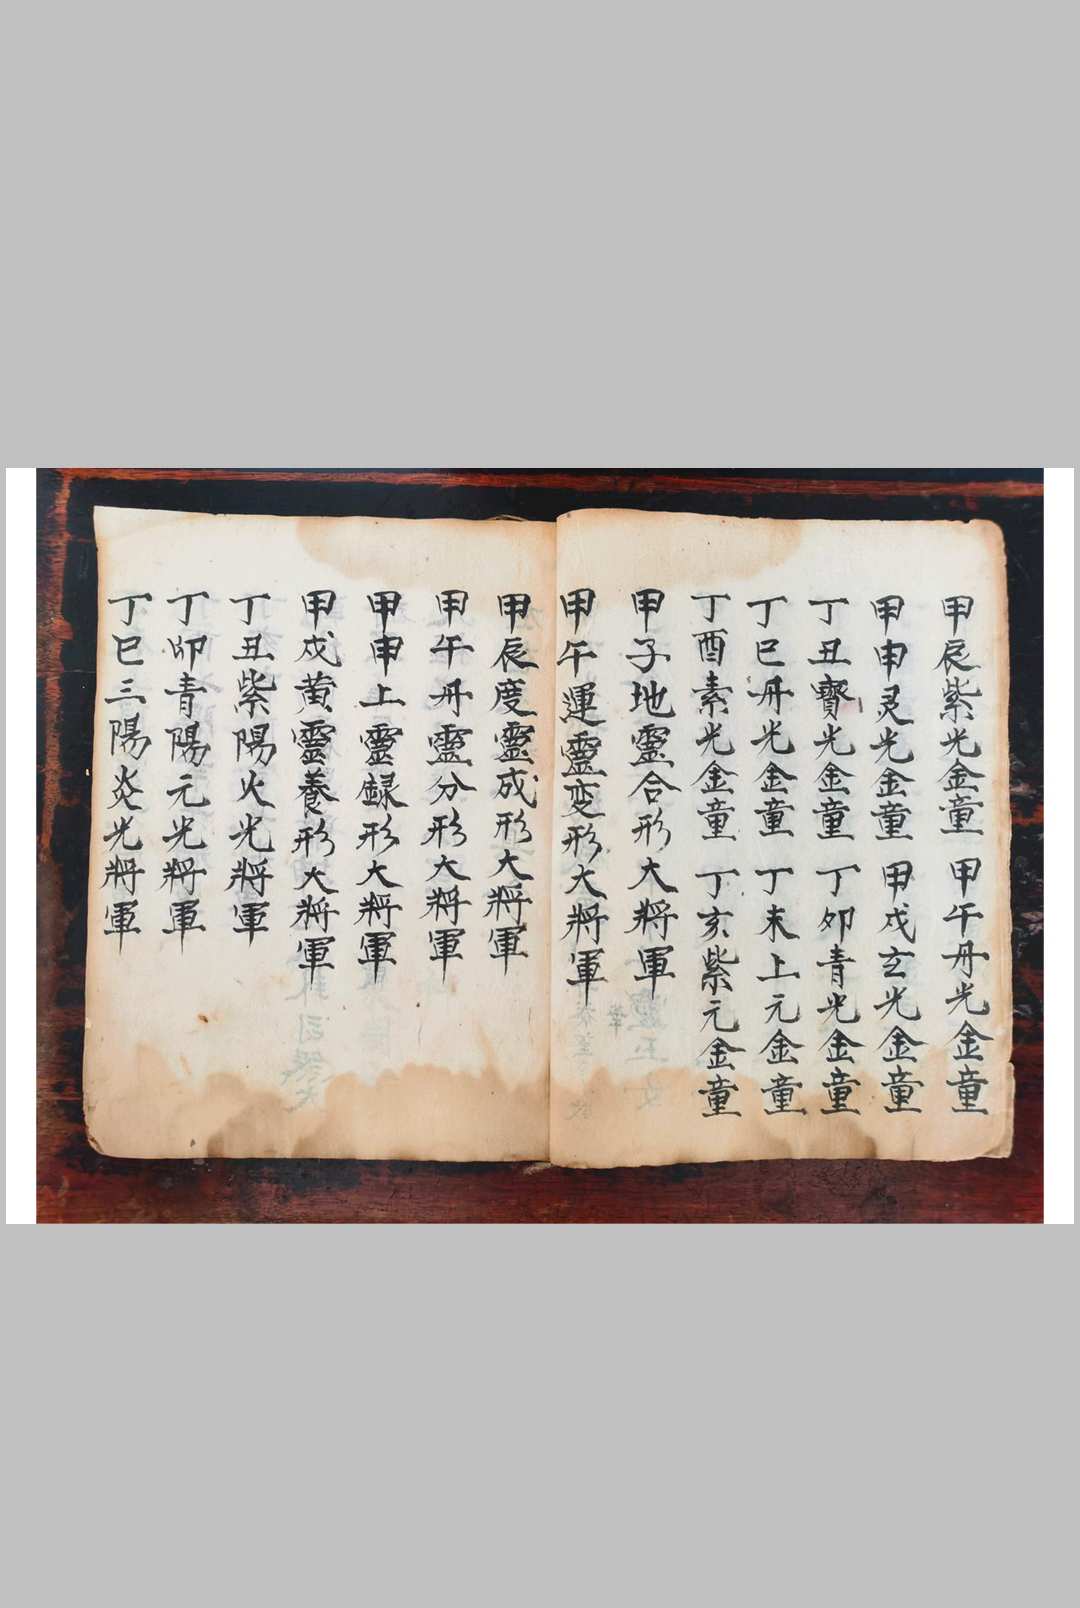 甲辰紫光金童 甲午丹光金童
甲申灵光金童 甲戌玄光金童
丁丑寶光金童 丁卯青光金童
丁巳丹光金童 丁未上元金童
丁酉素光金童 丁亥紫元金童
甲子地靈合形大將軍
甲午運靈变形大將軍
甲辰度靈成形大將軍
甲午丹靈分形大將軍
甲申上靈録形大將軍
甲戌黄靈養形大將軍
丁丑紫陽火光將軍
丁卯青陽元光將軍
丁巳三陽炎光將軍